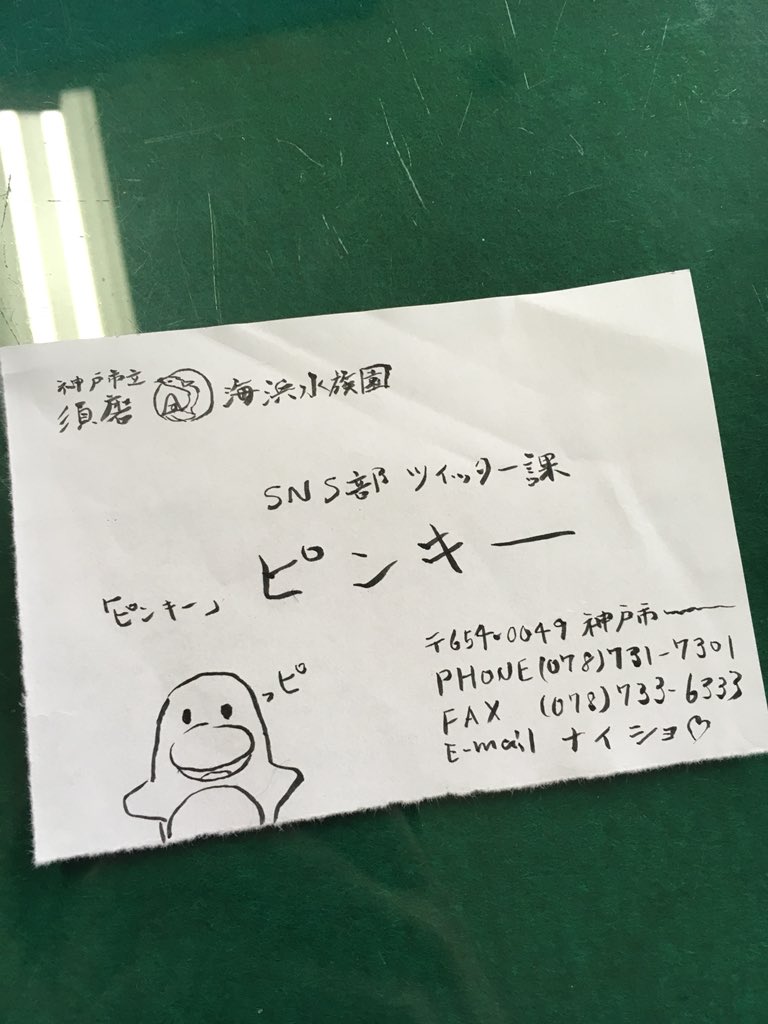 神戸市立
須磨 海浜水族園
SNS部 ツイッター課
ピンキー
「ピンキー」
〒654-0049 神戸市
PHONE (078)731-7301
FAX (078)733-6333
E-mail ナイショ♡
っピ